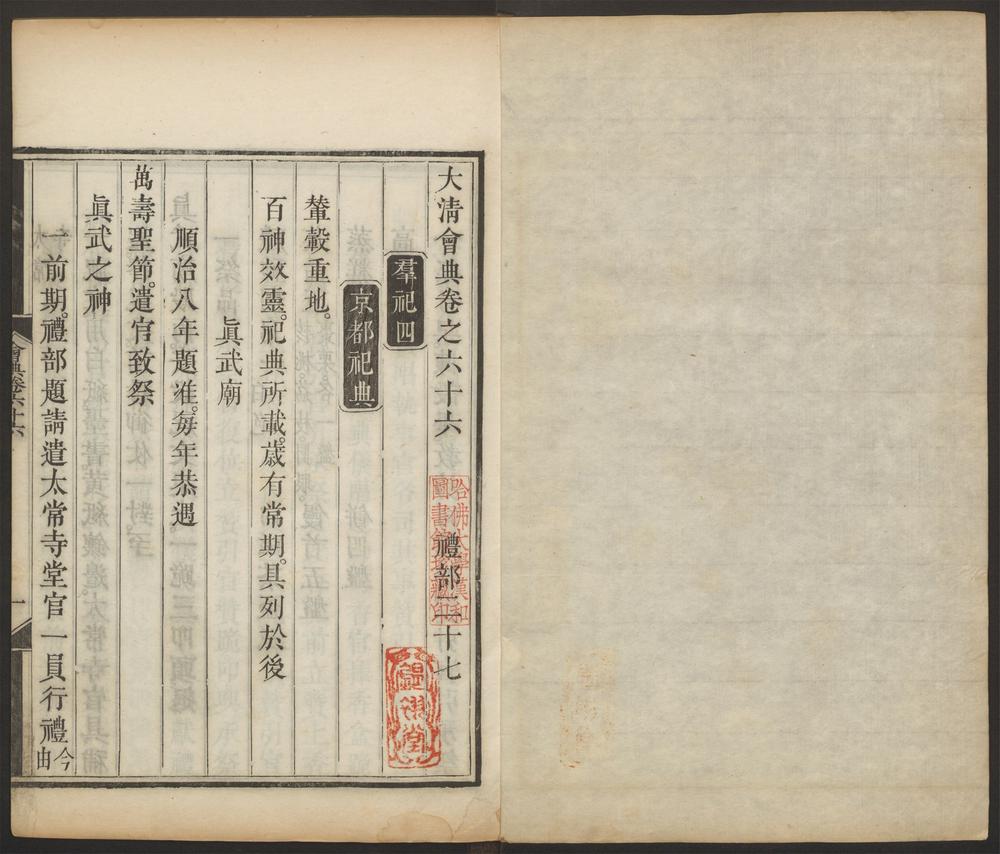 大淸會典卷之六十六　禮部二十七
羣祀四
京都祀典
輦轂重地。
百神效靈。祀典所載。歲有常期。具列於後
眞武廟
順治八年題准。每年恭遇
萬壽聖節。遣官致祭
眞武之神
一前期。禮部題請遣太常寺堂官一員行禮今由
會典卷六十六
一
哈佛大學漢和
圖書館珍藏印